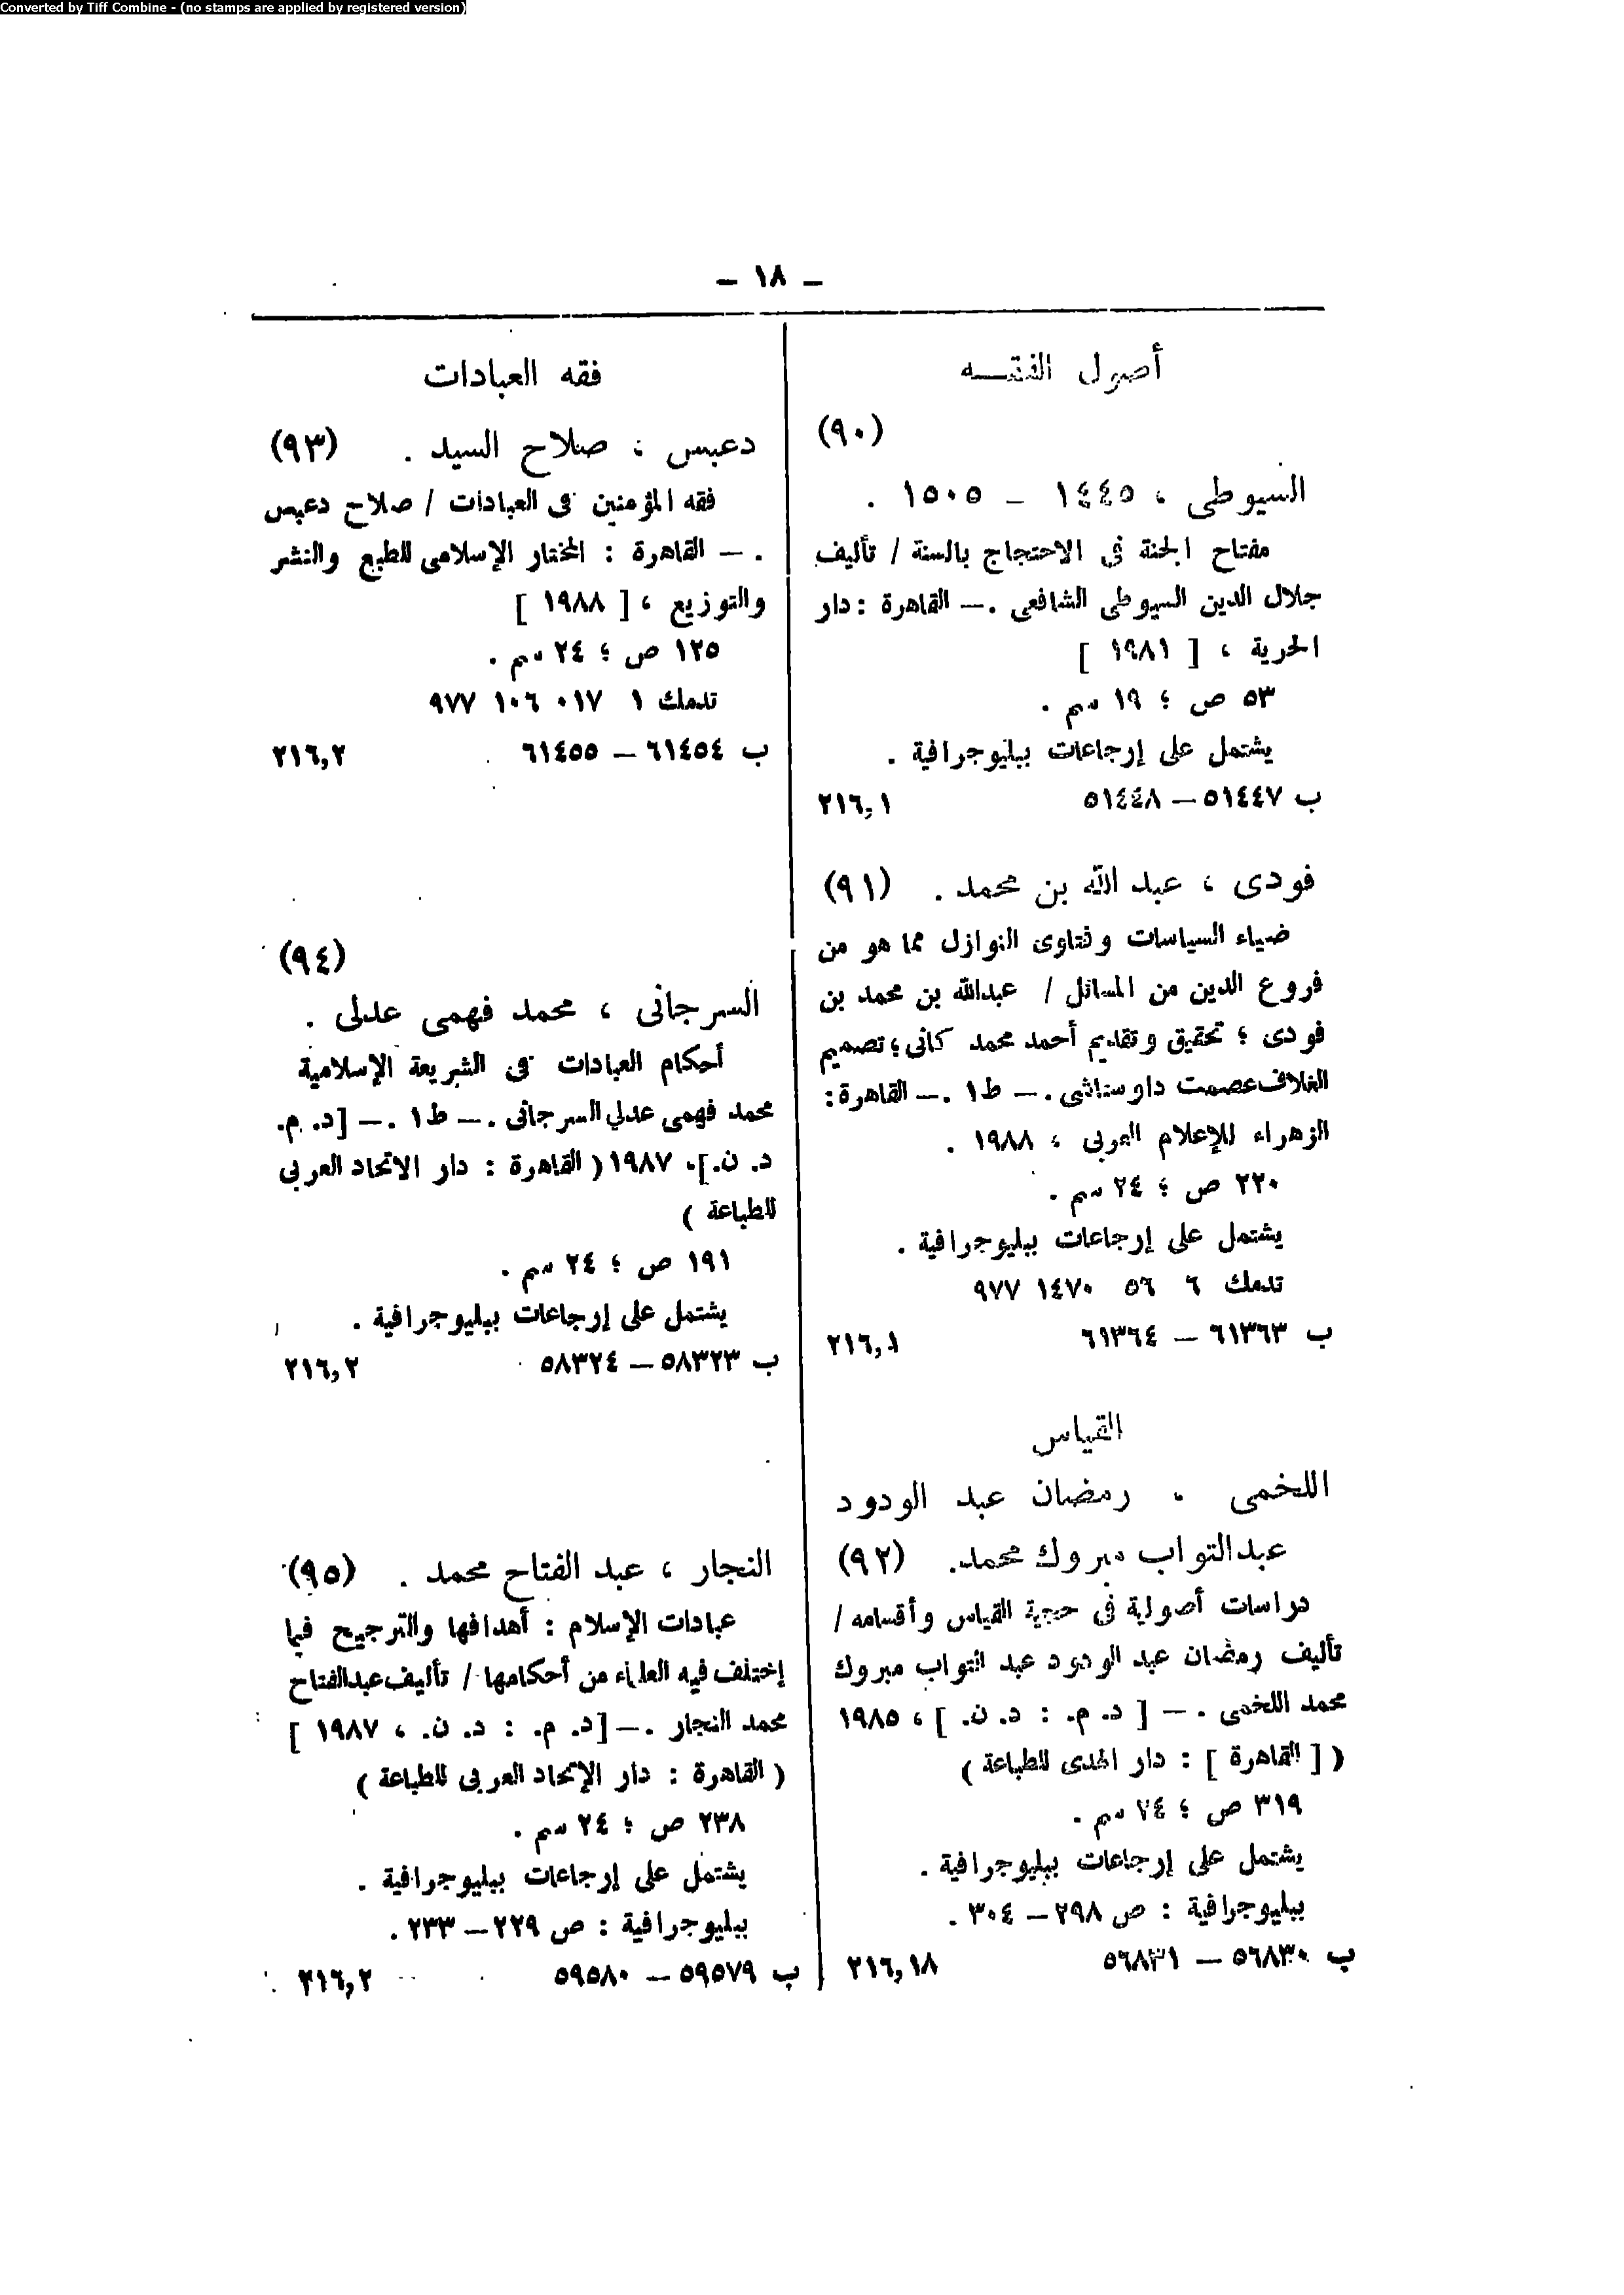 Converted by Tiff Combine - (no stamps are applied by registered version)
— ١٨ —
أصول الفقـــه
(٩٠)
السيوطى ، ١٤٤٥ – ١٥٠٥ .
مفتاح الجنة فى الاحتجاج بالسنة / تأليف
جلال الدين السيوطى الشافعى .— القاهرة : دار
الحرية ، [ ١٩٨١ ]
٥٣ ص ؛ ١٩ سم .
يشتمل على إرجاعات ببليوجرافية .
ب ٥١٤٤٧ — ٥١٤٤٨ ٢١٦,١
فودى ، عبد الله بن محمد . (٩١)
ضياء السياسات وفتاوى النوازل مما هو من
فروع الدين من المسائل / عبدالله بن محمد بن
فودى ؛ تحقيق وتقديم أحمد محمد كانى ؛ تصميم
الغلاف عصمت داوستاشى .— ط١ .— القاهرة :
الزهراء للإعلام العربى ، ١٩٨٨ .
٢٢٠ ص ؛ ٢٤ سم .
يشتمل على إرجاعات ببليوجرافية .
تدمك ٦ ٥٦ ١٤٧٠ ٩٧٧
ب ٦١٣٦٣ — ٦١٣٦٤ ٢١٦,١
القياس
اللخمى ، رمضان عبد الودود
عبدالتواب مبروك محمد. (٩٢)
دراسات أصولية فى حجية القياس وأقسامه /
تأليف رمضان عبد الودود عبد التواب مبروك
محمد اللخمى .— [ د. م. : د. ن. ] ، ١٩٨٥
( [ القاهرة ] : دار الهدى للطباعة )
٣١٩ ص ؛ ٢٤ سم .
يشتمل على إرجاعات ببليوجرافية .
ببليوجرافية : ص ٢٩٨ — ٣٠٤ .
ب ٥٦٨٣٠ — ٥٦٨٣١ ٢١٦,١٨
فقه العبادات
دعبس ، صلاح السيد . (٩٣)
فقه المؤمنين فى العبادات / صلاح دعبس
.— القاهرة : المختار الإسلامى للطبع والنشر
والتوزيع ، [ ١٩٨٨ ]
١٢٥ ص ؛ ٢٤ سم .
تدمك ١ ٠١٧ ١٠٦ ٩٧٧
ب ٦١٤٥٤ — ٦١٤٥٥ ٢١٦,٢
(٩٤)
السرجانى ، محمد فهمى عدلى .
أحكام العبادات فى الشريعة الإسلامية
محمد فهمى عدلي السرجانى .— ط١ .— [د. م.
د. ن.]، ١٩٨٧ ( القاهرة : دار الاتحاد العربى
للطباعة )
١٩١ ص ؛ ٢٤ سم .
يشتمل على إرجاعات ببليوجرافية .
ب ٥٨٣٢٣ — ٥٨٣٢٤ ٢١٦,٢
النجار ، عبد الفتاح محمد . (٩٥)
عبادات الإسلام : أهدافها والترجيح فيما
إختلف فيه العلماء من أحكامها / تأليف عبدالفتاح
محمد النجار .— [د. م. : د. ن. ، ١٩٨٧ ]
( القاهرة : دار الإتحاد العربى للطباعة )
٢٣٨ ص ؛ ٢٤ سم .
يشتمل على إرجاعات ببليوجرافية .
ببليوجرافية : ص ٢٢٩ — ٢٣٣ .
ب ٥٩٥٧٩ — ٥٩٥٨٠ ٢١٦,٢